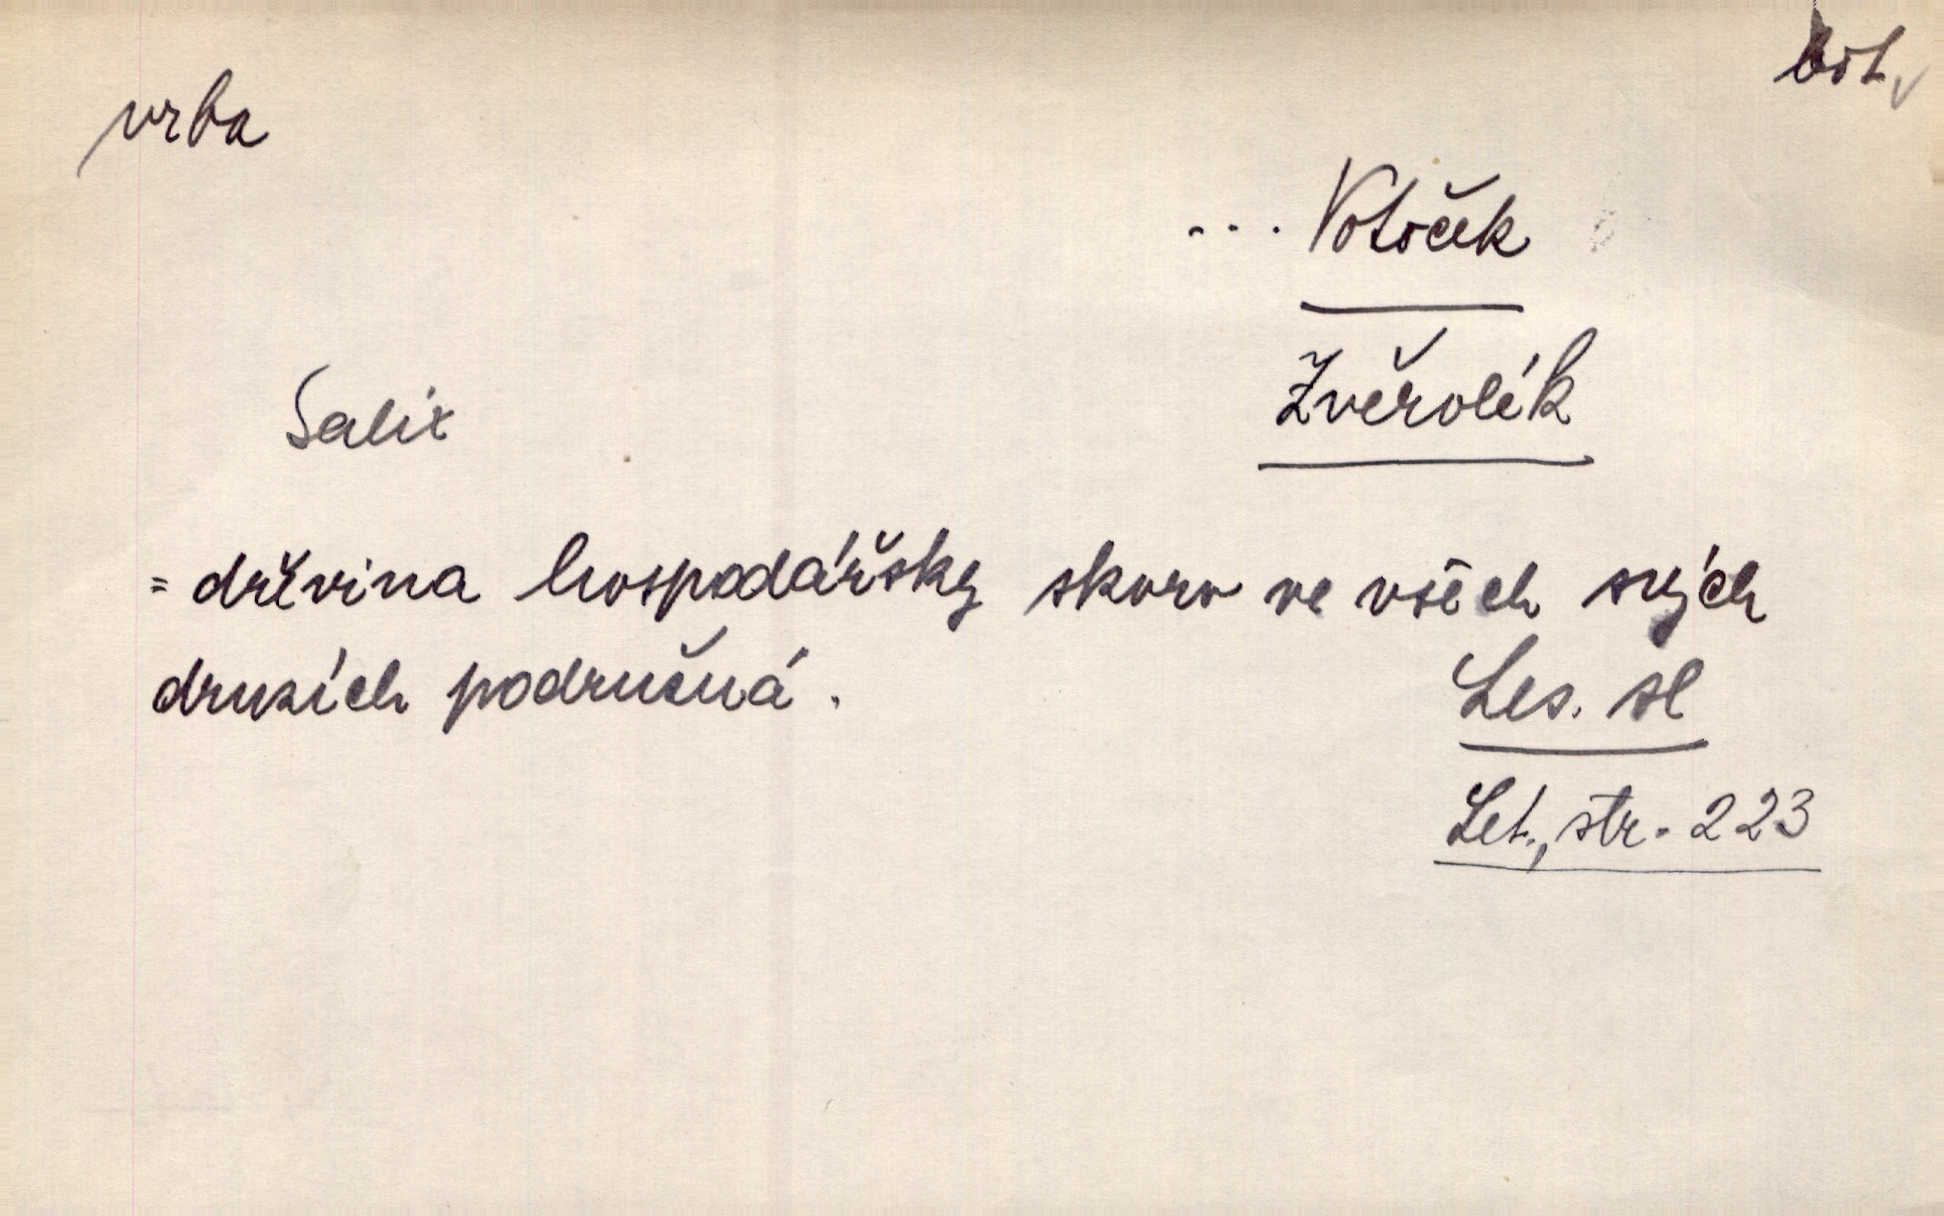 bot.
vrba
... Votoček
Zvěrolík
Salix
= dřevina hospodářsky skoro ve všech svých
druzích podružná.
Les. sl
Let., str. 223